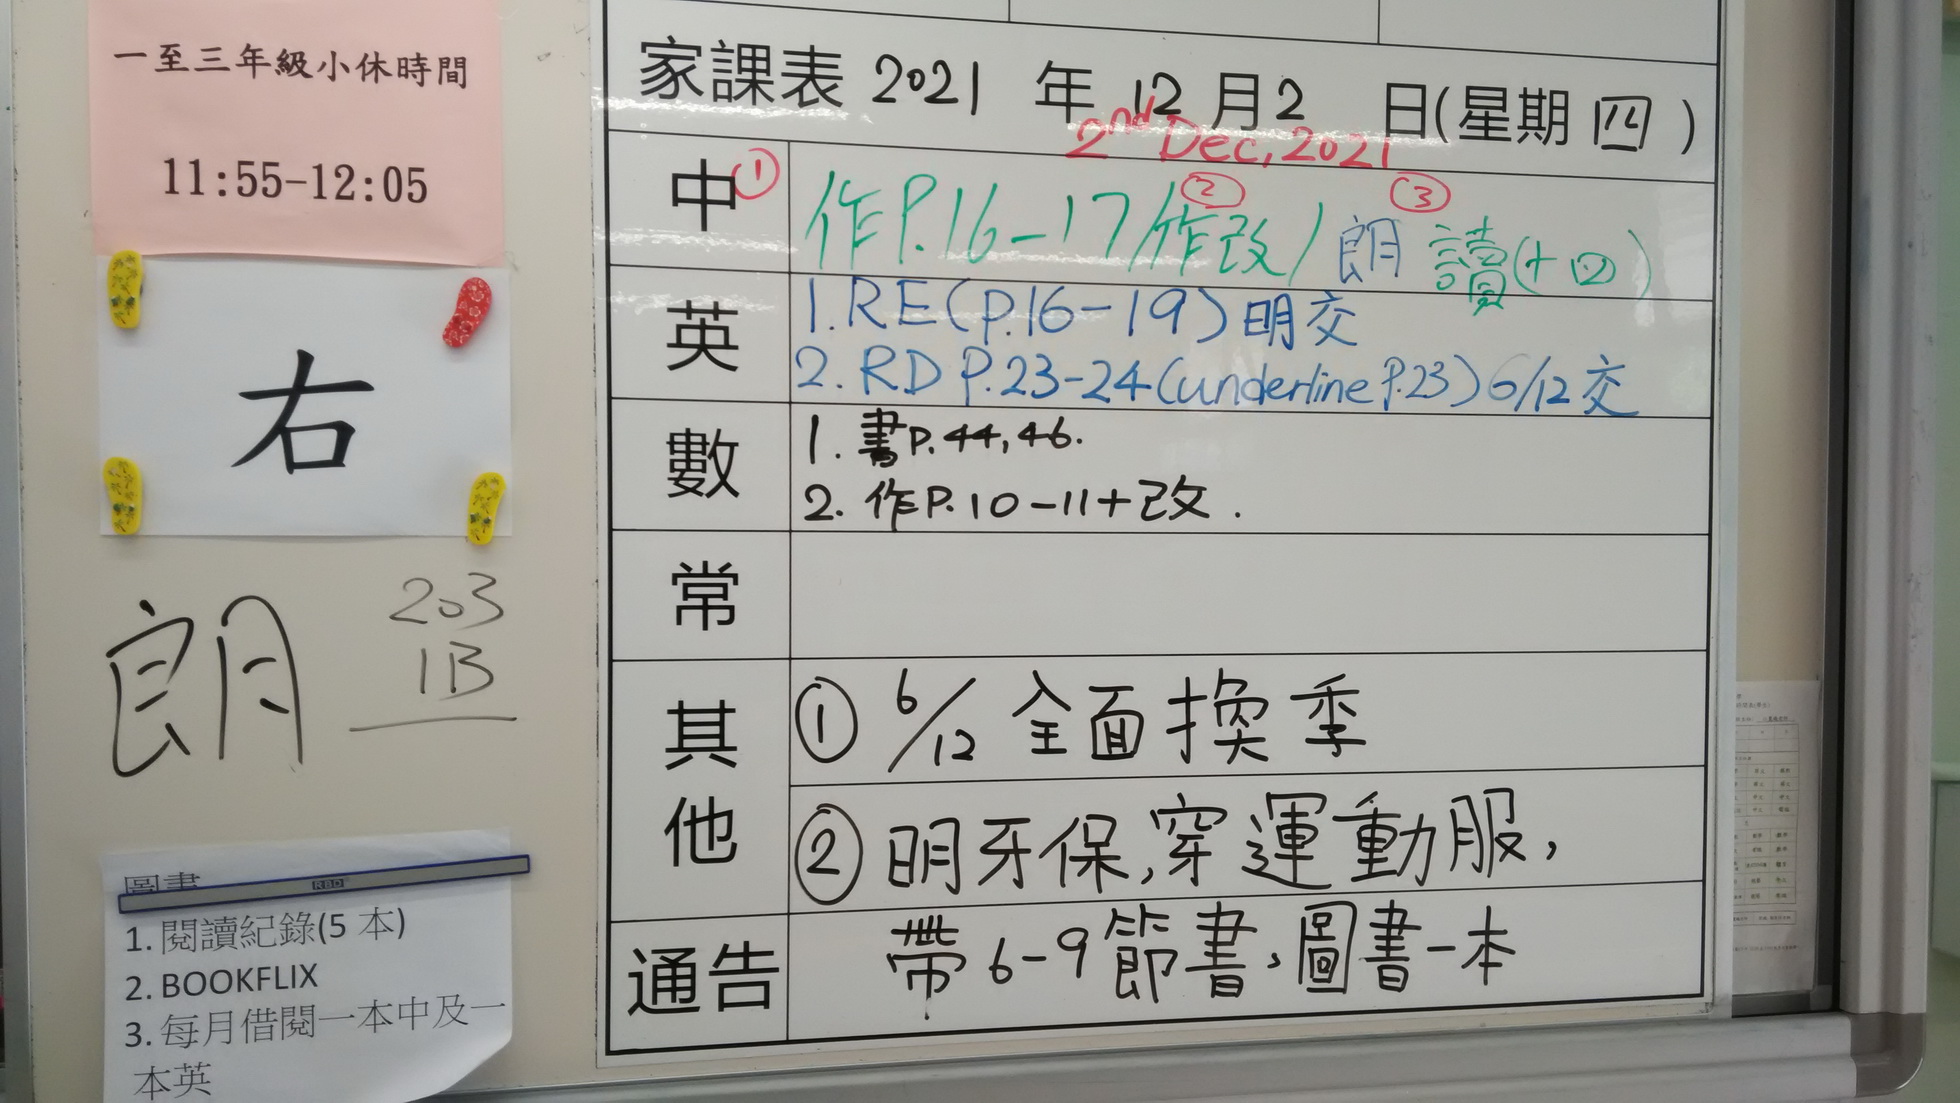 一至三年級小休時間
11:55-12:05
右
朗
203
1B
圖書
1. 閱讀紀錄(5 本)
2. BOOKFLIX
3. 每月借閱一本中及一
本英
RBD
家課表 2021 年 12 月 2 日(星期 四)
2nd Dec, 2021
中 ① ② ③
作P.16-17/作改/朗讀(十四)
英
1. RE(P.16-19)明交
2. RD P.23-24(underline P.23)6/12交
數
1. 書P.44,46.
2. 作P.10-11+改.
常
其他
① 6/12 全面換季
② 明牙保,穿運動服,
通告
帶6-9節書、圖書一本